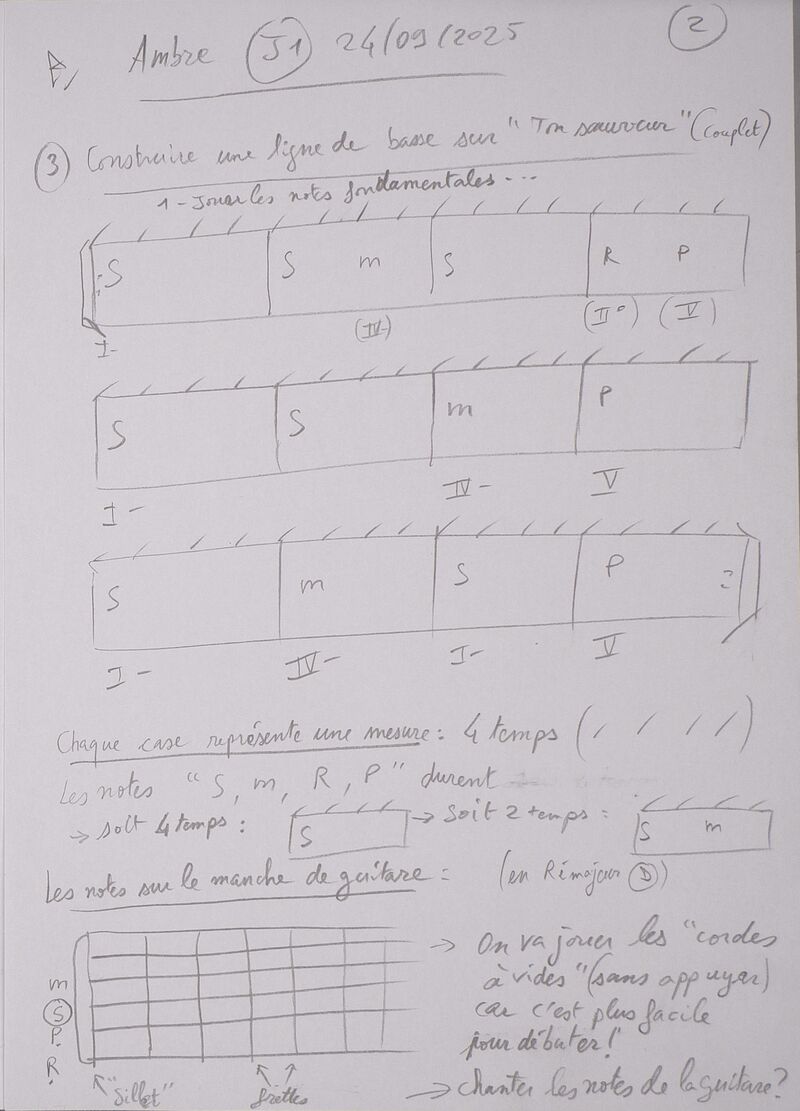 Ambre J1 24/09/2025
2
3 Construire une ligne de basse sur "Ton sauveur" (couplet)
1 - Jouer les notes fondamentales ...
S S m S R P
I- (IV-) (II°) (V)
S S m P
I- IV- V
S m S P
I- IV- I- V
Chaque case représente une mesure : 4 temps ( / / / / )
Les notes "S, m, R, P" durent
→ soit 4 temps : S → Soit 2 temps : S m
Les notes sur le manche de guitare : (en Ré majeur D)
→ On va jouer les "cordes
à vides" (sans appuyer)
car c'est plus facile
pour débuter !
m
S
P
R
"Sillet" frettes
→ Chanter les notes de la guitare ?